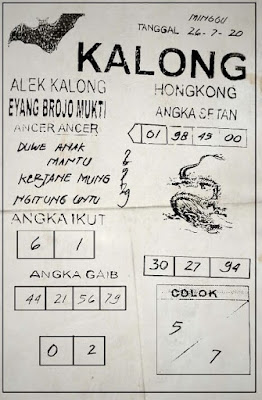 MINGGU
TANGGAL 26-7-20
KALONG
ALEK KALONG
EYANG BROJO MUKTI
ANCER ANCER
DUWE ANAK
MANTU
KERJANE MUNG
NGITUNG UNTU
ANGKA IKUT
6 1
ANGKA GAIB
44 21 56 79
0 2
HONGKONG
ANGKA SETAN
01 98 49 00
30 27 94
COLOK
5
7